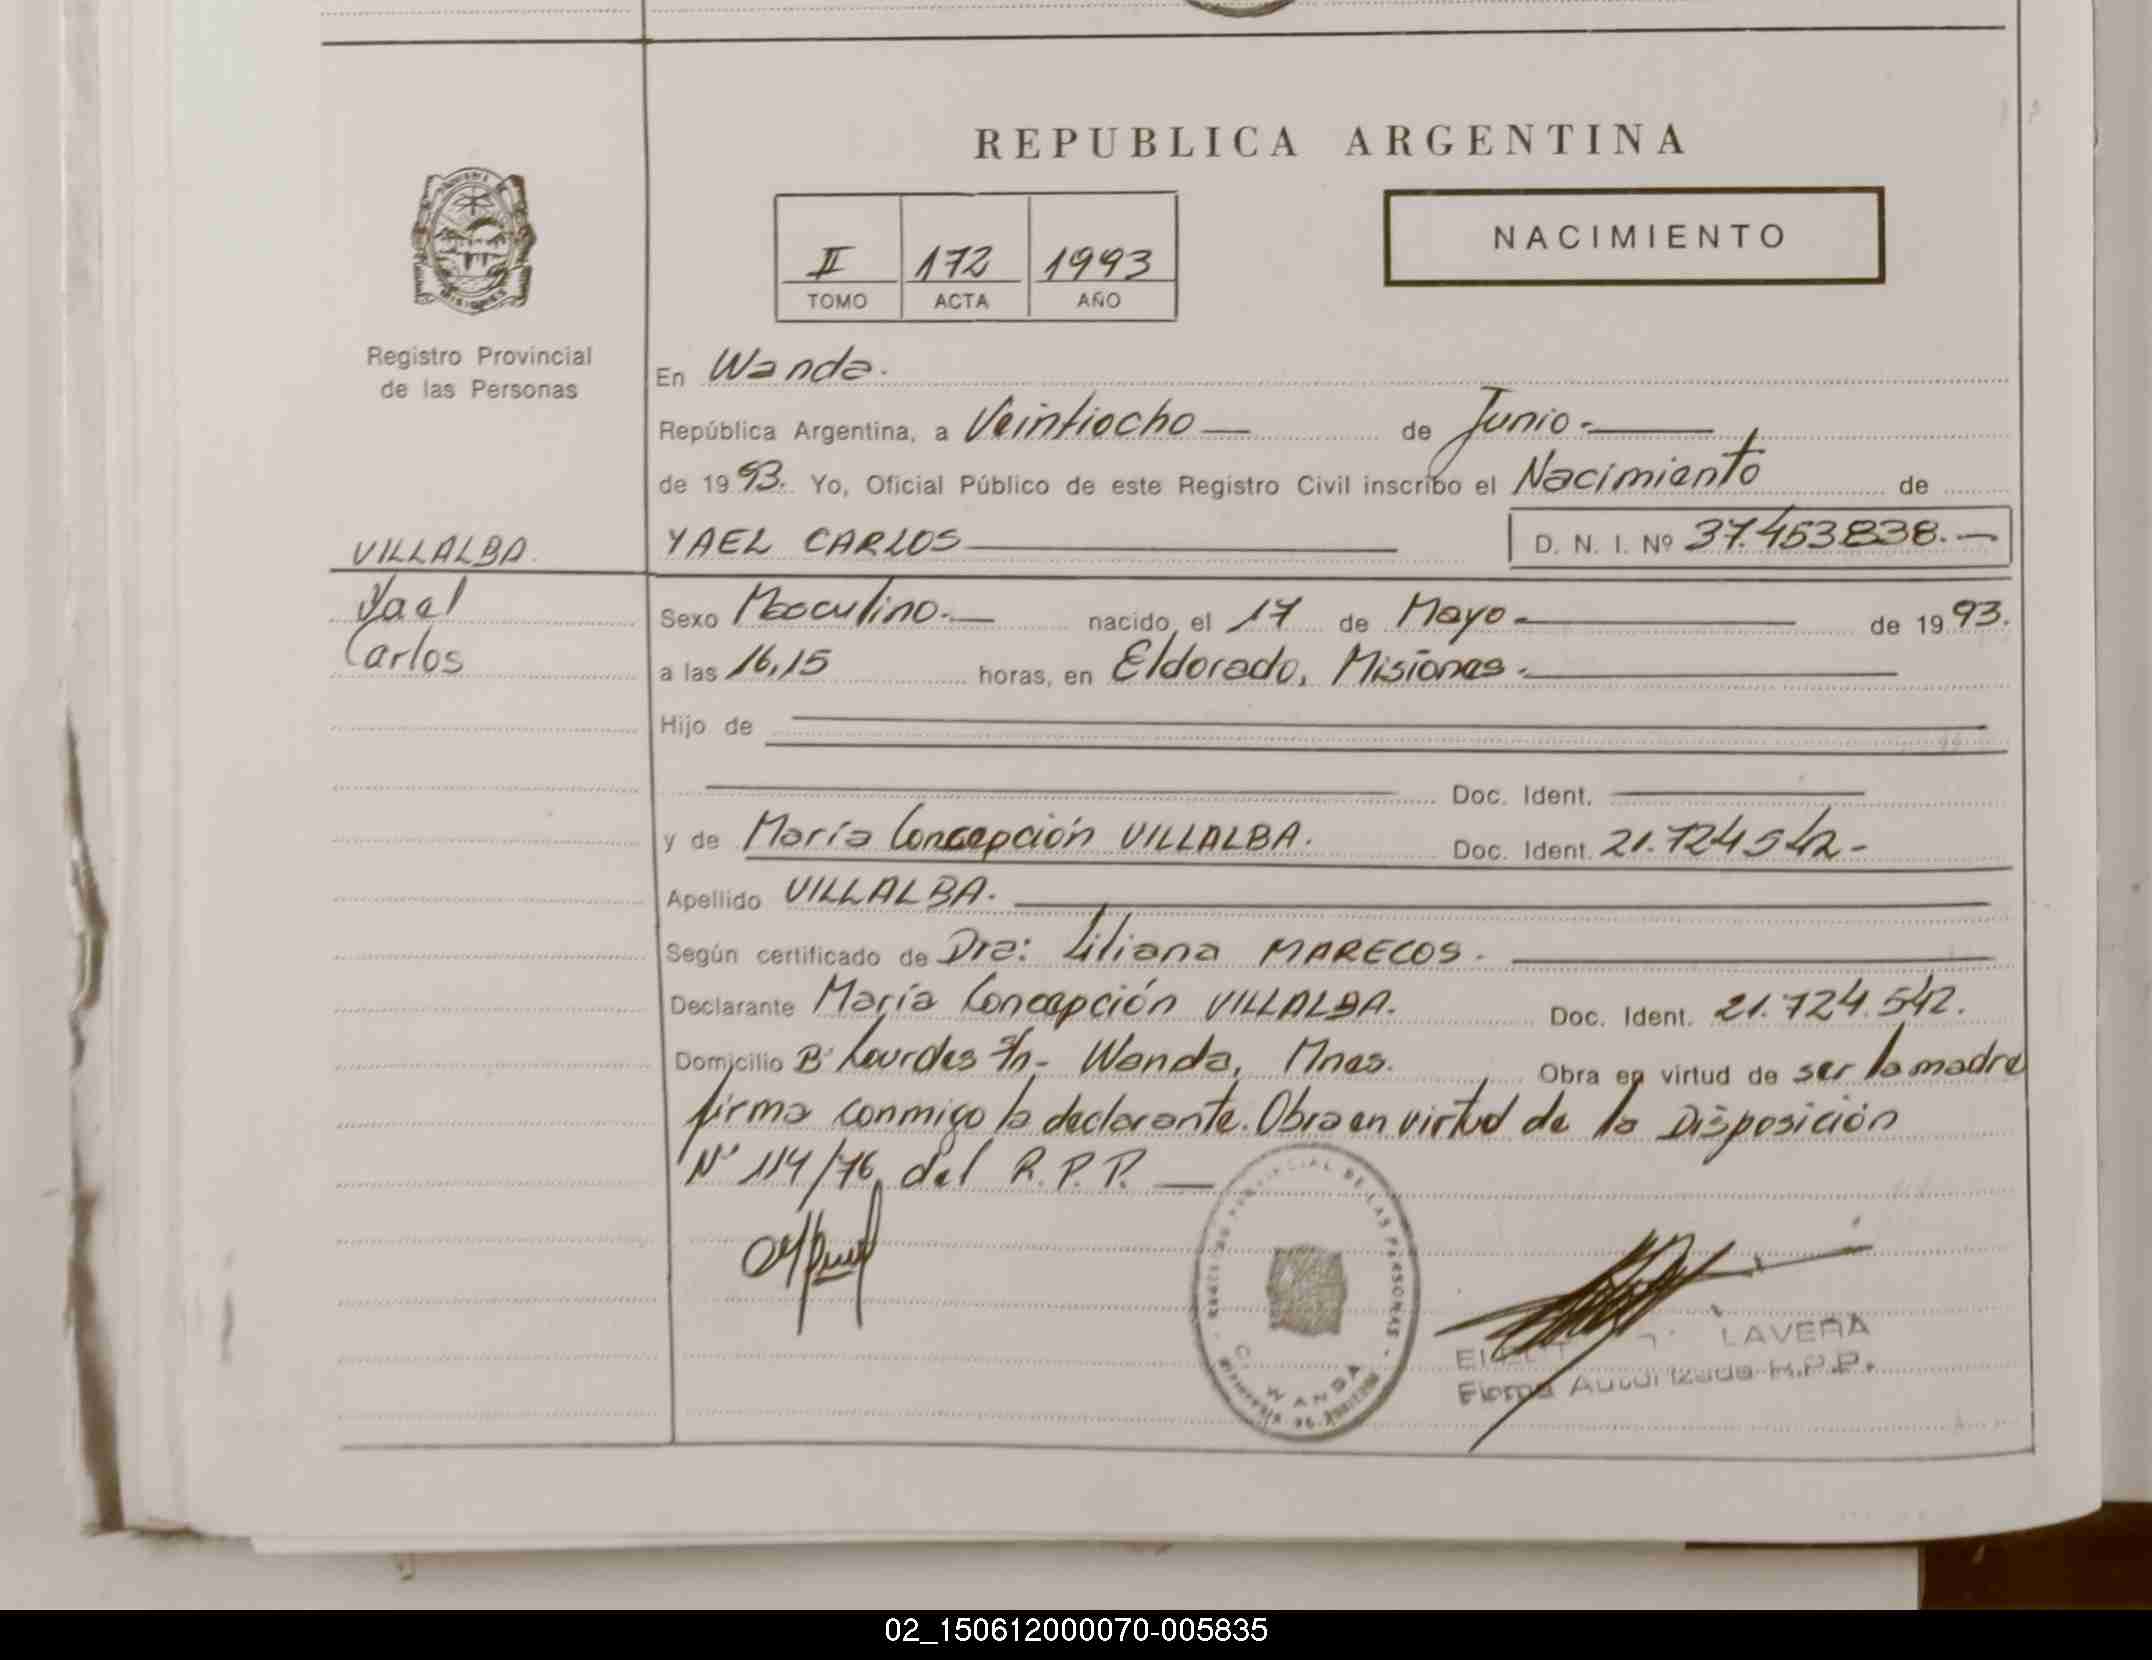 REPUBLICA ARGENTINA
MISIONES
Registro Provincial
de las Personas
II 172 1993
TOMO ACTA AÑO
NACIMIENTO
En Wanda.
República Argentina, a Veintiocho — de Junio.-
de 1993. Yo, Oficial Público de este Registro Civil inscribo el Nacimiento de
VILLALBA.
YAEL CARLOS D. N. I. Nº 37.453.838.—
Yael
Carlos
Sexo Masculino.— nacido el 17 de Mayo de 1993.
a las 16,15 horas, en Eldorado, Misiones.
Hijo de
Doc. Ident.
y de María Concepción VILLALBA. Doc. Ident. 21.724542-
Apellido VILLALBA.
Según certificado de Dra: Liliana MARECOS.
Declarante María Concepción VILLALBA. Doc. Ident. 21.724.542.
Domicilio Bº Lourdes s/n- Wanda, Mnes. Obra en virtud de ser la madre
firma conmigo la declarante. Obra en virtud de la Disposición
Nº 114/76 del R.P.P. —
PROVINCIAL DE LAS PERSONAS
WANDA
LAVERA
Firma Autorizada R.P.P.
02_150612000070-005835